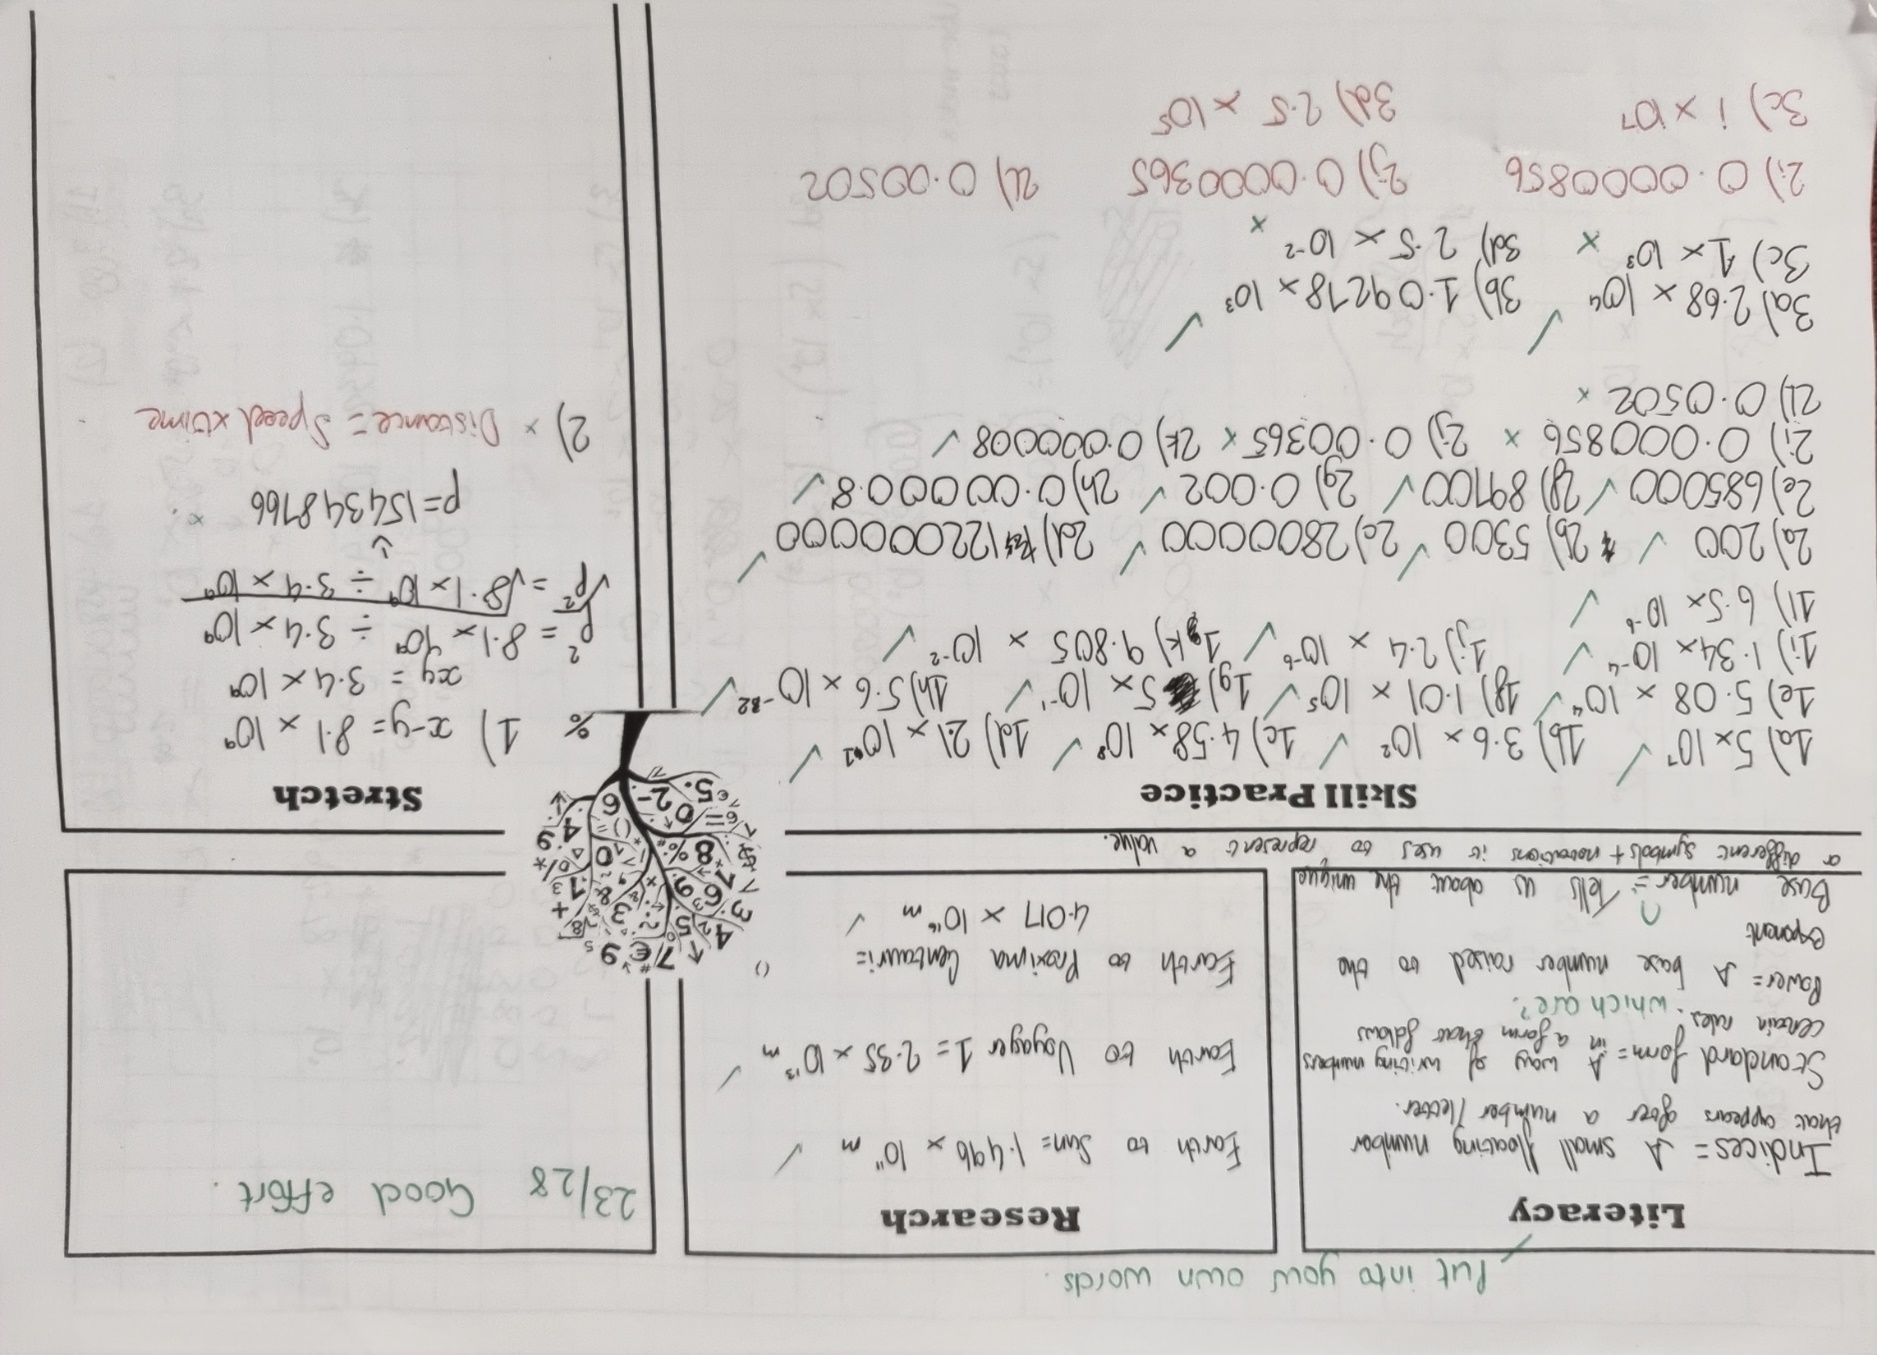 Put into your own words.
Literacy
Indices = A small floating number
that appears after a number / letter.
Standard form = A way of writing numbers
in a form that follows
certain rules. which are?
Power = A base number raised to the
exponent
Base number = Tells us about the unique
different symbols + notations it uses to represent a value.
Research
Earth to Sun = 1.496 × 10¹¹ m ✓
Earth to Voyager 1 = 2.35 × 10¹³ m ✓
Earth to Proxima Centauri =
4.017 × 10¹⁶ m ✓
23/28 Good effort.
Skill Practice
1a) 5 × 10⁷ ✓ 1b) 3.6 × 10² ✓ 1c) 4.58 × 10⁸ ✓ 1d) 2.1 × 10 ✓
1e) 5.08 × 10⁴ ✓ 1f) 1.01 × 10⁵ ✓ 1g) 5 × 10⁻¹ ✓ 1h) 5.6 × 10 ✓
1i) 1.34 × 10⁻⁴ ✓ 1j) 2.4 × 10⁻⁶ ✓ 1k) 9.805 × 10⁻² ✓
1l) 6.5 × 10⁻⁶ ✓
2a) 200 ✓ 2b) 5300 ✓ 2c) 28000000 ✓ 2d) 12200000000 ✓
2e) 685000 ✓ 2f) 89700 ✓ 2g) 0.002 ✓ 2h) 0.00 000 0.8 ✓
2i) 0.000856 × 2j) 0.00365 × 2k) 0.000008 ✓
2l) 0.0502 ×
3a) 2.68 × 10⁴ ✓ 3b) 1.09278 × 10³ ✓
3c) 1 × 10³ × 3d) 2.5 × 10⁻² ×
2i) 0.0000856 2j) 0.0000365 2l) 0.00502
3c) 1 × 10⁷ 3d) 2.5 × 10⁵
Stretch
1) x-y = 8.1 × 10⁹
xy = 3.4 × 10⁹
p² = 8.1 × 10⁹ ÷ 3.4 × 10⁹
√p² = √8.1 × 10⁹ ÷ 3.4 × 10⁹
p = 154348766 ×
2) × Distance = Speed × time